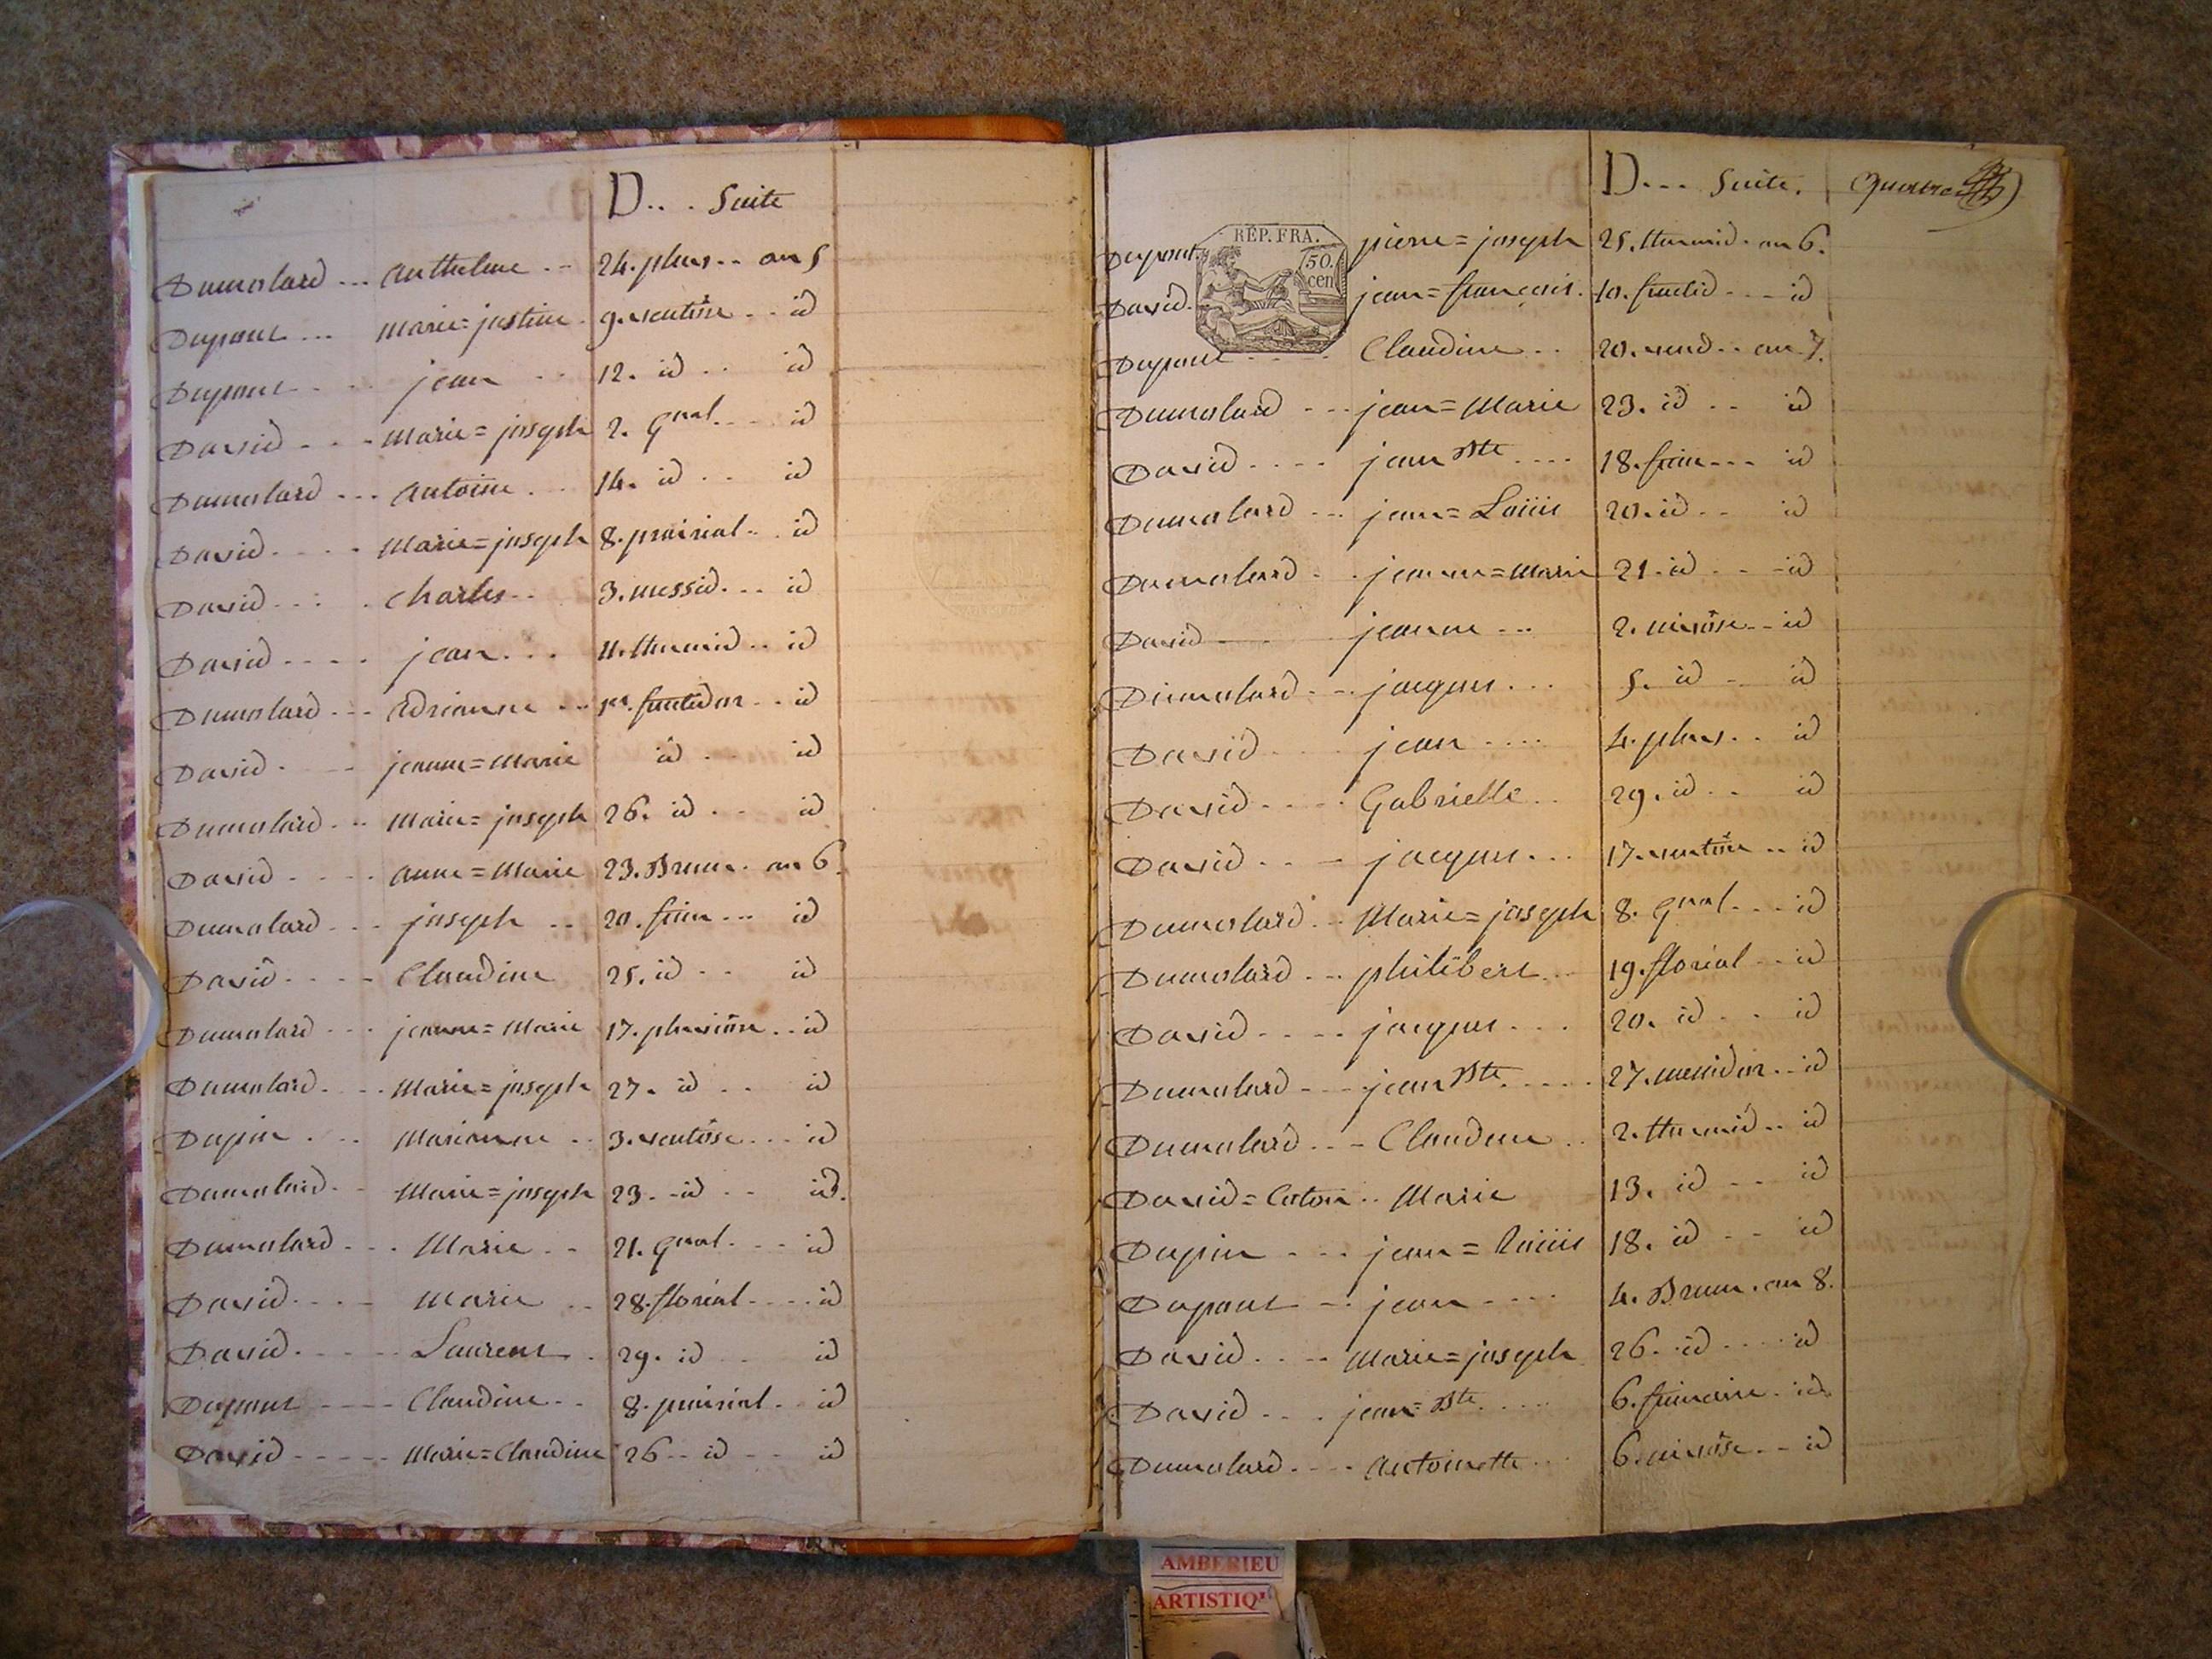 D... Suite
Dumolard ... anthelme .. 24. pluv.. an 5
Dupont ... marie=justine . 9. ventôse .. id
Dupont .... jean .. 12. id .. id
David .... marie=joseph 2. gnal ... id
Dumolard ... antoine ... 14. id .. id
David ..... marie=joseph 8. prairial .. id
David .... charles .. 3. messid. .. id
David .... jean ... 11. thermid .. id
Dumolard ... adrianne ... 1er. fructidor .. id
David .... jeanne=marie id .. id
Dumolard ... marie=joseph 26. id .. id
David .... anne=marie 23. Brum. an 6.
Dumolard ... joseph .. 20. frim ... id
David .... Claudine 25. id .. id
Dumolard ... jeanne=marie 17. pluviôse .. id
Dumolard .... marie=joseph 27. id .. id
Dupin ... marianne .. 3. ventôse ... id
Dumolard .. marie=joseph 23. id .. id.
Dumolard ... Marie .. 21. gnal. ... id
David .... marie .. 28. floréal .... id
David ..... Laurent . 29. id .. id
Dupont .... Claudine .. 8. prairial . id
David ..... marie=Claudine 26 .. id .. id
D... Suite.
RÉP. FRA.
50. cen
Dupont pierre=joseph 25. thermid. an 6.
David. jean=françois. 10. fructid ... id
Dupont ... Claudine .. 20. vend .. an 7.
Dumolard ... jean=Marie 23. id .. id
David .... jean Bte .... 18. frim ... id
Dumolard ... jean=Loüis 20. id .. id
Dumolard .. jeanne=marie 21. id .. id
David .... jeanne ... 2. nivôse .. id
Dumolard ... jacques ... 5. id .. id
David .... jean .... 4. pluv. .. id
David .... Gabrielle .. 29. id .. id
David ... jacques ... 17. ventôse .. id
Dumolard ... Marie=joseph 8. gnal. .. id
Dumolard ... philibert .. 19. floréal .. id
David .... jacques ... 20. id .. id
Dumolard ... jean Bte ..... 27. messidor .. id
Dumolard ... Claudine .. 2. thermid .. id
David= .. Marie 13. id .. id
Dupin ... jean=Loüis 18. id .. id
Dupont ... jean .... 4. Brum. an 8.
David .... marie=joseph 26. id .... id
David ... jean=Bte ..... 6. frimaire . id
Dumolard .... antoinette ... 6. nivôse .. id
AMBERIEU
ARTISTIQ